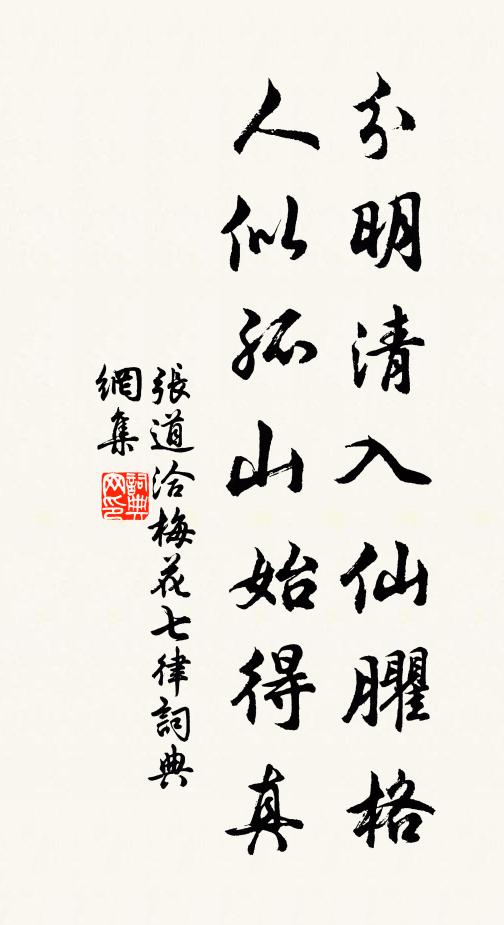 分明清入仙臞格
人似孤山始得真
張道洽梅花七律詞典
網集
詞典
网印